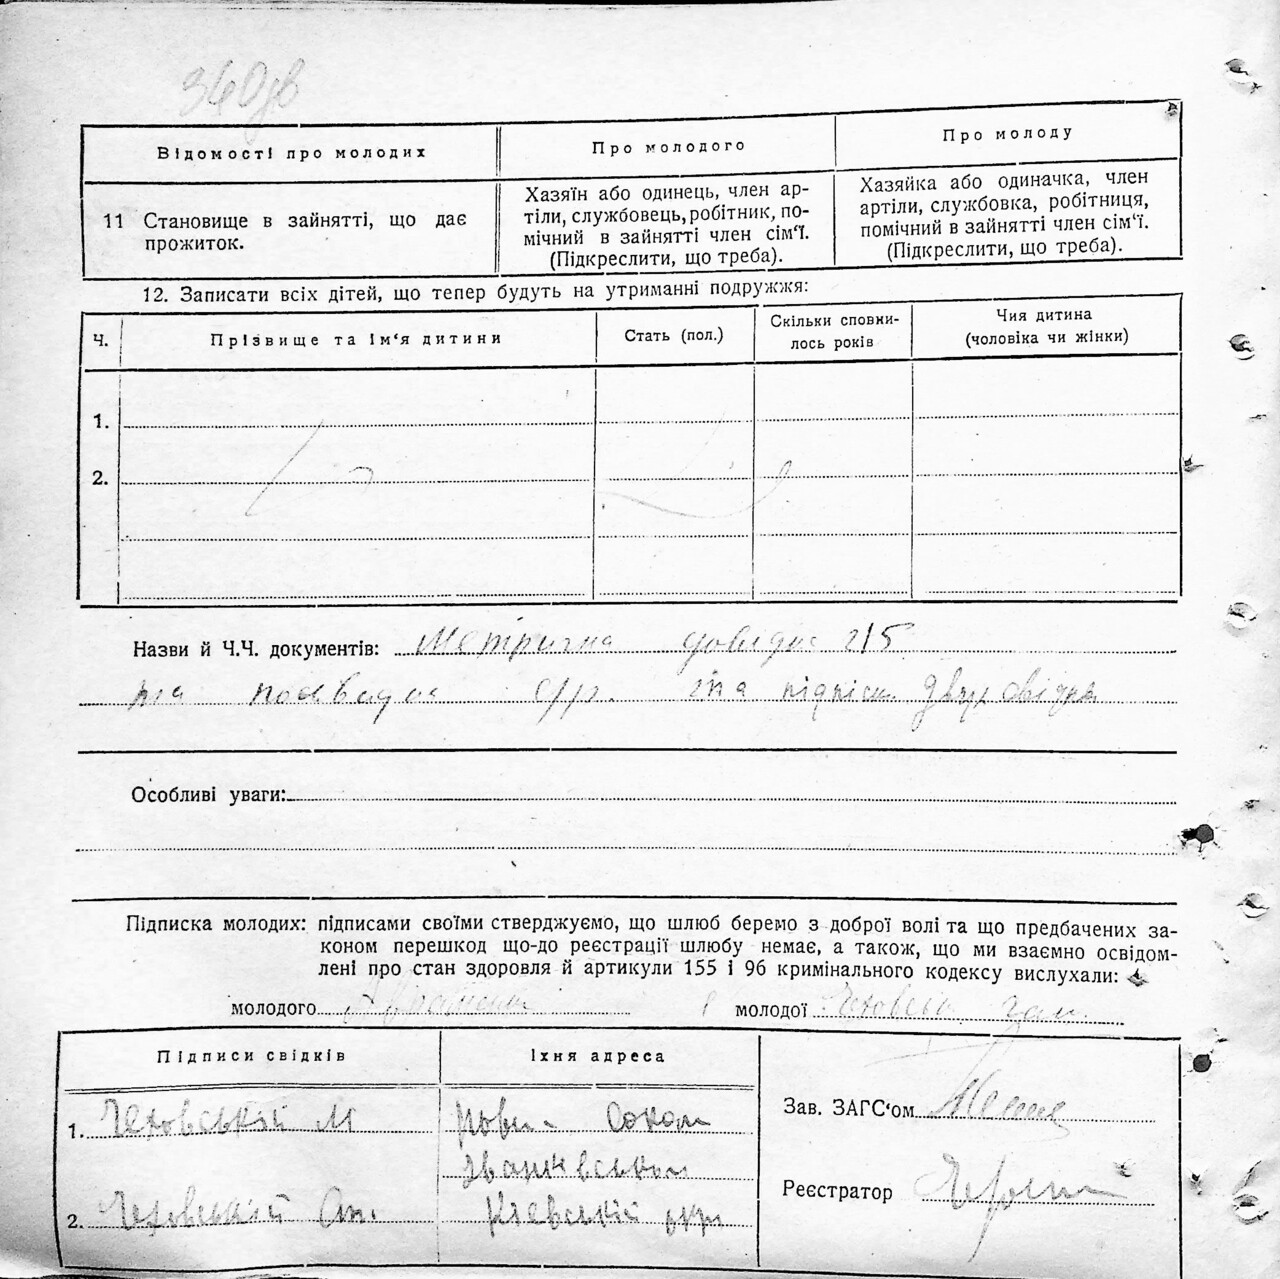 340зв
Відомості про молодих
Про молодого
Про молоду
11 Становище в зайнятті, що дає
прожиток.
Хазяїн або одинець, член ар-
тіли, службовець, робітник, по-
мічний в зайнятті член сім‘ї.
(Підкреслити, що треба).
Хазяйка або одиначка, член
артіли, службовка, робітниця,
помічний в зайнятті член сім‘ї.
(Підкреслити, що треба).
12. Записати всіх дітей, що тепер будуть на утриманні подружжя:
Ч.
Прізвище та ім‘я дитини
Стать (пол.)
Скільки сповни-
лось років
Чия дитина
(чоловіка чи жінки)
1.
2.
Назви й Ч.Ч. документів: Метрична довідка 215
та та підпіск
Особливі уваги:
Підписка молодих: підписами своїми стверджуємо, що шлюб беремо з доброї волі та що предбачених за-
коном перешкод що-до реєстрації шлюбу немає, а також, що ми взаємно освідом-
лені про стан здоровля й артикули 155 і 96 кримінального кодексу вислухали:
молодого
молодої
Підписи свідків
Їхня адреса
1. Чеховській М
2. Чеховській Оп.
Київській окр
Зав. ЗАГС‘ом
Реєстратор